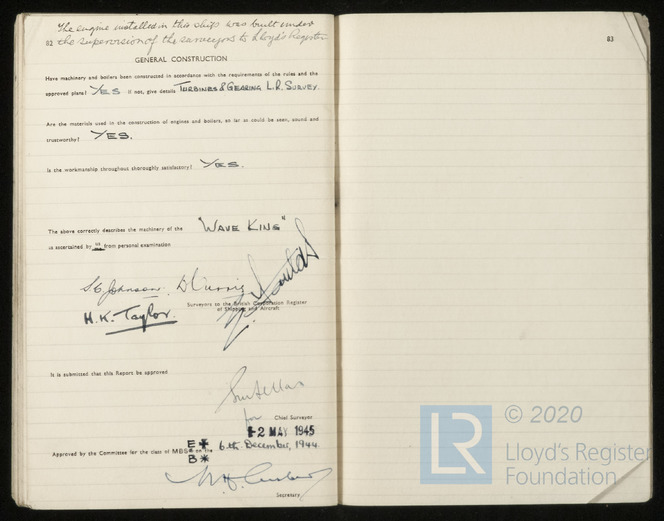 The engine installed in this ship was built under
82 the supervision of the surveyors to Lloyd's Register
83
GENERAL CONSTRUCTION
Have machinery and boilers been constructed in accordance with the requirements of the rules and the
approved plans? YES If not, give details TURBINES & GEARING L.R. SURVEY.
Are the materials used in the construction of engines and boilers, so far as could be seen, sound and
trustworthy? YES.
Is the workmanship throughout thoroughly satisfactory? YES.
The above correctly describes the machinery of the "WAVE KING"
as ascertained by us from personal examination
S C Johnson. D Currie
H.K. Taylor.
Surveyors to the British Corporation Register
of Shipping and Aircraft
It is submitted that this Report be approved
for Chief Surveyor
2 MAY 1945
Approved by the Committee for the class of MBS* on the 6th December, 1944
E+
B*
Secretary
LR © 2020
Lloyd's Register
Foundation